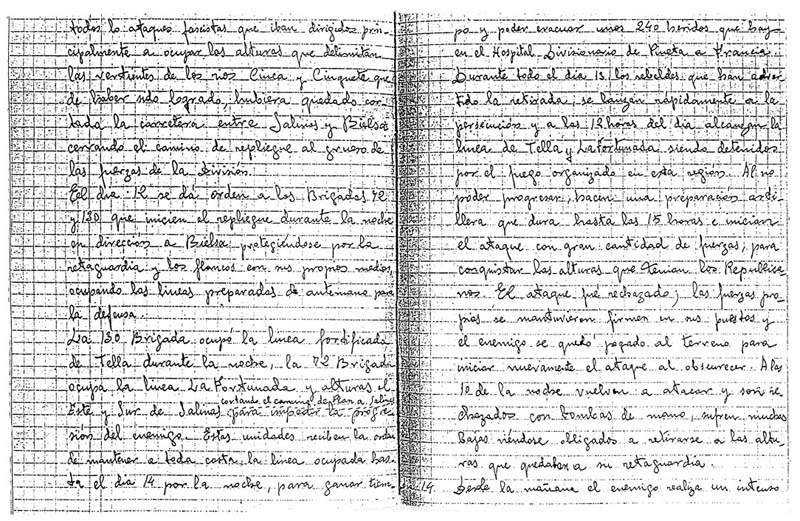 todos lo ataques fascistas que iban dirigidos prin-
cipalmente a ocupar las alturas que delimitan
las vertientes de los rios Cinca y Cinqueta que
de haber sido logrado, hubiera quedado cor-
tada la carretera entre Salinas y Bielsa
cerrando el camino de repliegue al grueso de
las fuerzas de la División.
El dia 12 se dá orden a las Brigadas 72
y 130 que inicien el repliegue durante la noche
en dirección a Bielsa protegiéndose por la
retaguardia y los flancos con sus propios medios,
ocupando las lineas preparadas de antemano para
la defensa.
La 130 Brigada ocupó la linea fortificada
de Tella durante la noche, la 72 Brigada
ocupa la linea La Fortunada y alturas al
cortando el camino de Plan a Salinas
Este y Sur de Salinas para impedir la progre-
sión del enemigo. Estas unidades reciben la orden
de mantener a toda costa la linea ocupada has-
ta el dia 14 por la noche, para ganar tiem-
po y poder evacuar unos 240 heridos que hay
en el Hospital Divisionario de Pineta a Francia.
Durante todo el dia 13 los rebeldes que han adver
tido la retirada, se lanzan rápidamente a la
persecución y a las 12 horas del dia alcanzan la
linea de Tella y La Fortunada siendo detenidos
por el fuego organizado en esta región. Al no
poder progresar, hacen una preparacion arti-
llera que dura hasta las 15 horas e inician
el ataque con gran cantidad de fuerzas, para
conquistar las alturas que tenian los Republica-
nos. El ataque fué rechazado, las fuerzas pro
pias se mantuvieron firmes en sus puestos y
el enemigo se quedo pegado al terreno para
iniciar nuevamente el ataque al obscurecer. A las
12 de la noche vuelven a atacar y son re
chazados con bombas de mano, sufren muchas
bajas viéndose obligados a retirarse a las altu-
ras que quedaban a su retaguardia.
14 Desde la mañana el enemigo realiza un intenso